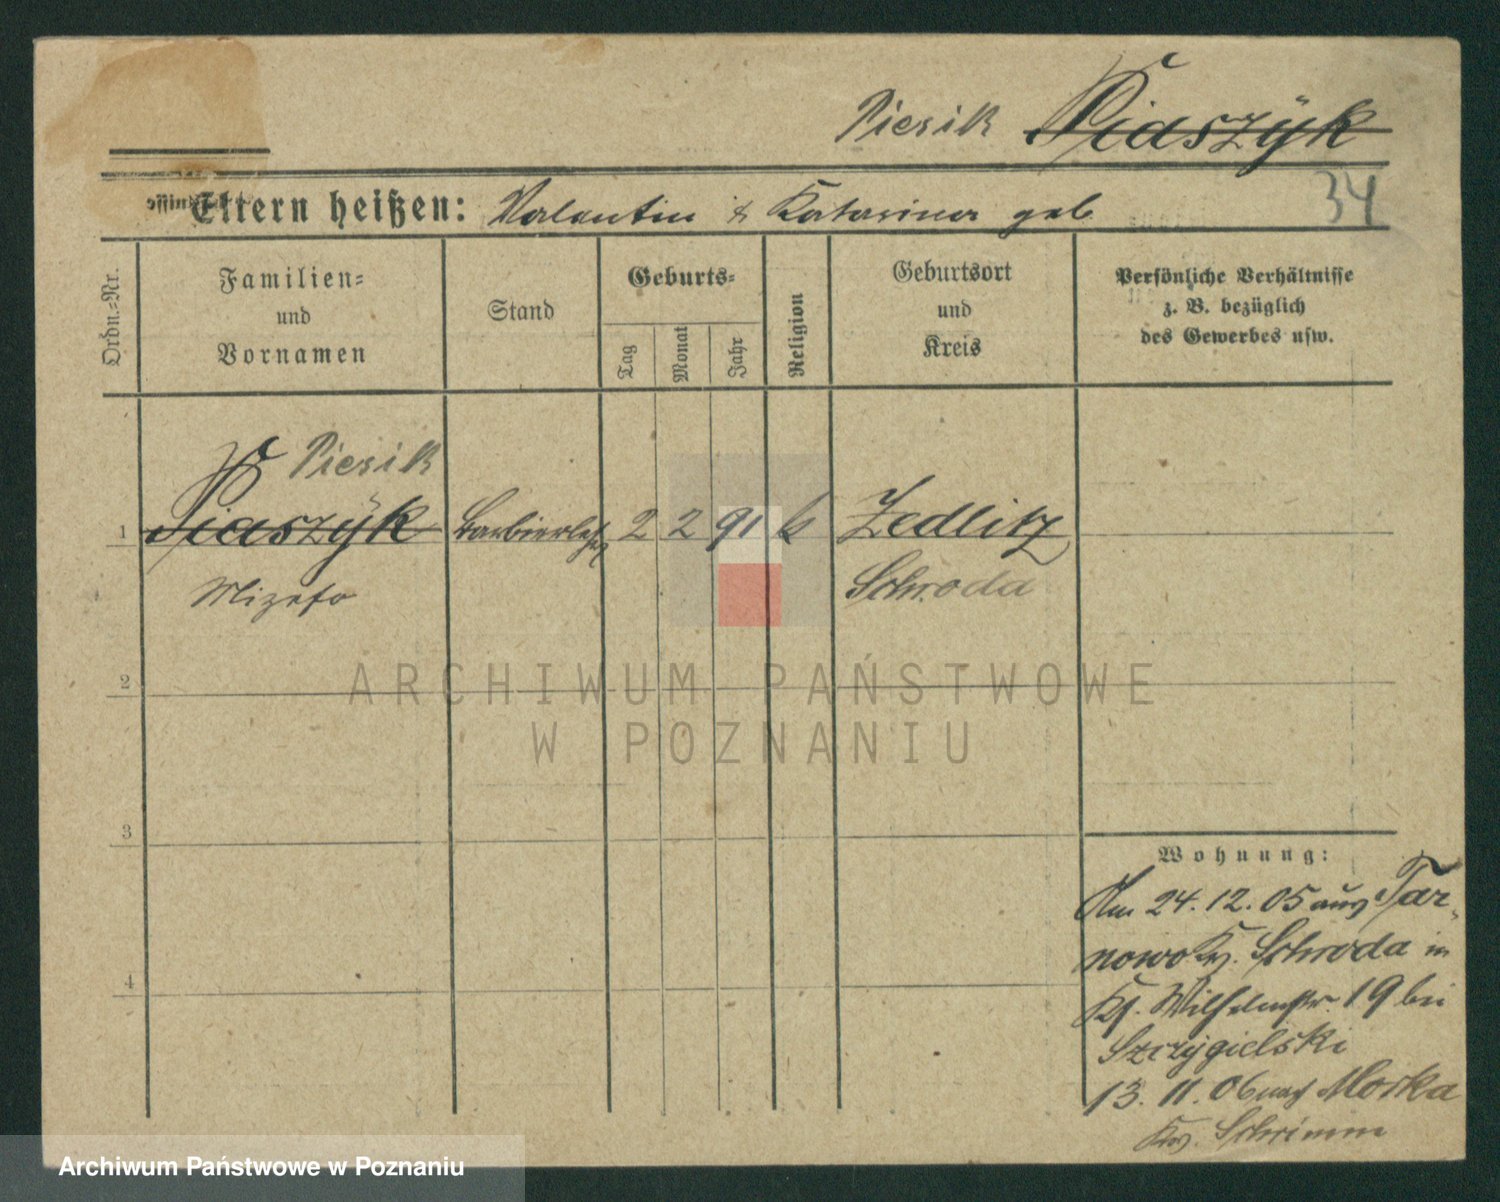 Piesik Piaszÿk
Eltern heißen: Valentin & Katarina geb
34
Ordn.-Nr.
Familien-
und
Vornamen
Stand
Geburts-
Tag
Monat
Jahr
Religion
Geburtsort
und
Kreis
Persönliche Verhältnisse
z. B. bezüglich
des Gewerbes usw.
Piesik
1 Piaszÿk 2 2 91 k Zedlitz
Schroda
2
3
4
Wohnung:
Am 24.12.05 aus Tar-
nowo Kr. Schroda in
Wilhelmstr. 19 bei
Szczygielski
13. 11. 06 nach Morka
Kr. Schrimm
ARCHIWUM PAŃSTWOWE
W POZNANIU
Archiwum Państwowe w Poznaniu